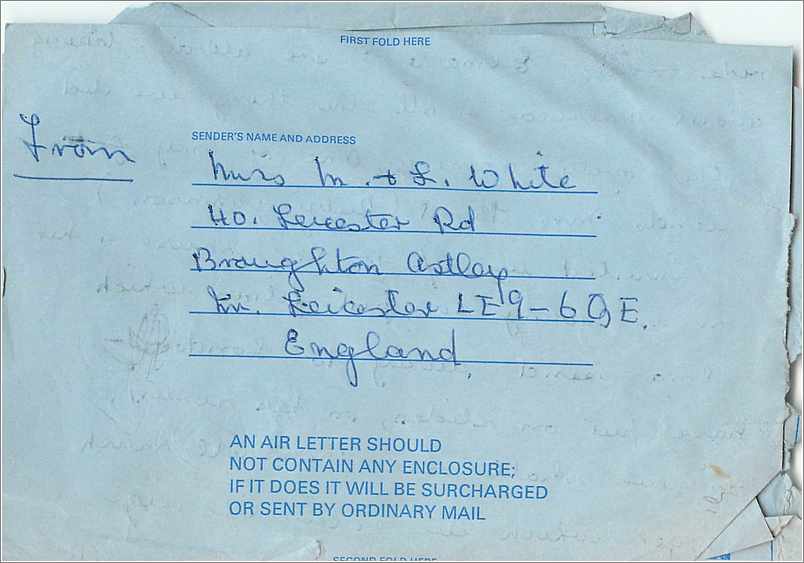 FIRST FOLD HERE
From
SENDER'S NAME AND ADDRESS
M. + L. White
40. Leicester Rd
Broughton Astley
Nr. Leicester LE9-6QE.
England
AN AIR LETTER SHOULD
NOT CONTAIN ANY ENCLOSURE;
IF IT DOES IT WILL BE SURCHARGED
OR SENT BY ORDINARY MAIL
SECOND FOLD HERE